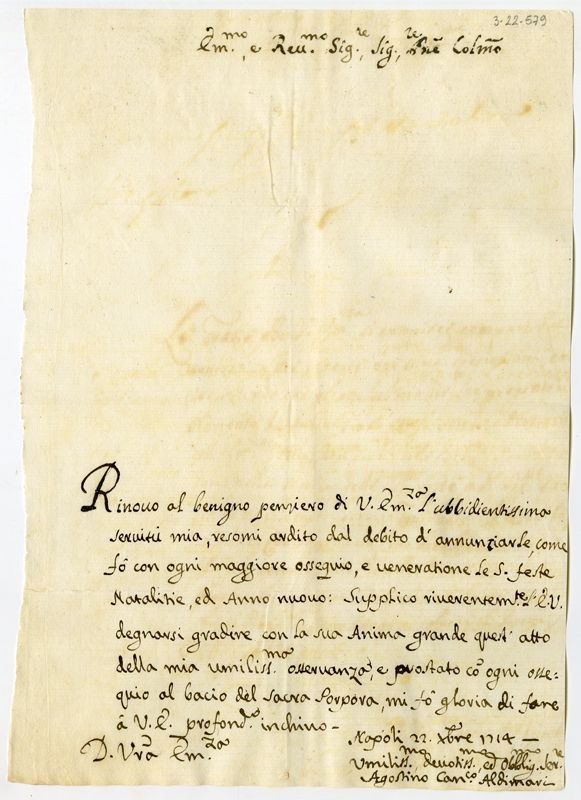 3-22-579
Em.mo, e Reu.mo Sig.re, Sig.re, Pñe Colmõ
Rinouo al benigno penziero di V. Em.za l'ubbidientissima
seruitù mia, resomi ardito dal debito d'annunziarle, come
fò con ogni maggiore ossequio, e ueneratione le S. feste
Natalitie, ed Anno nuouo: Supplico riuerentem.te l'E.V.
degnarsi gradire con la sua Anima grande quest' atto
della mia umiliss.ma osseruanza, e prostato cõ ogni osse=
quio al bacio del sacra Porpora, mi fò gloria di fare
à V.E. profond.o inchino-
Napoli 22. Xbre 1714-
D. Vrã Em.za
Umiliss.mo, deuotiss.mo, ed Obblig.mo Ser.re
Agostino Can.co Aldimari